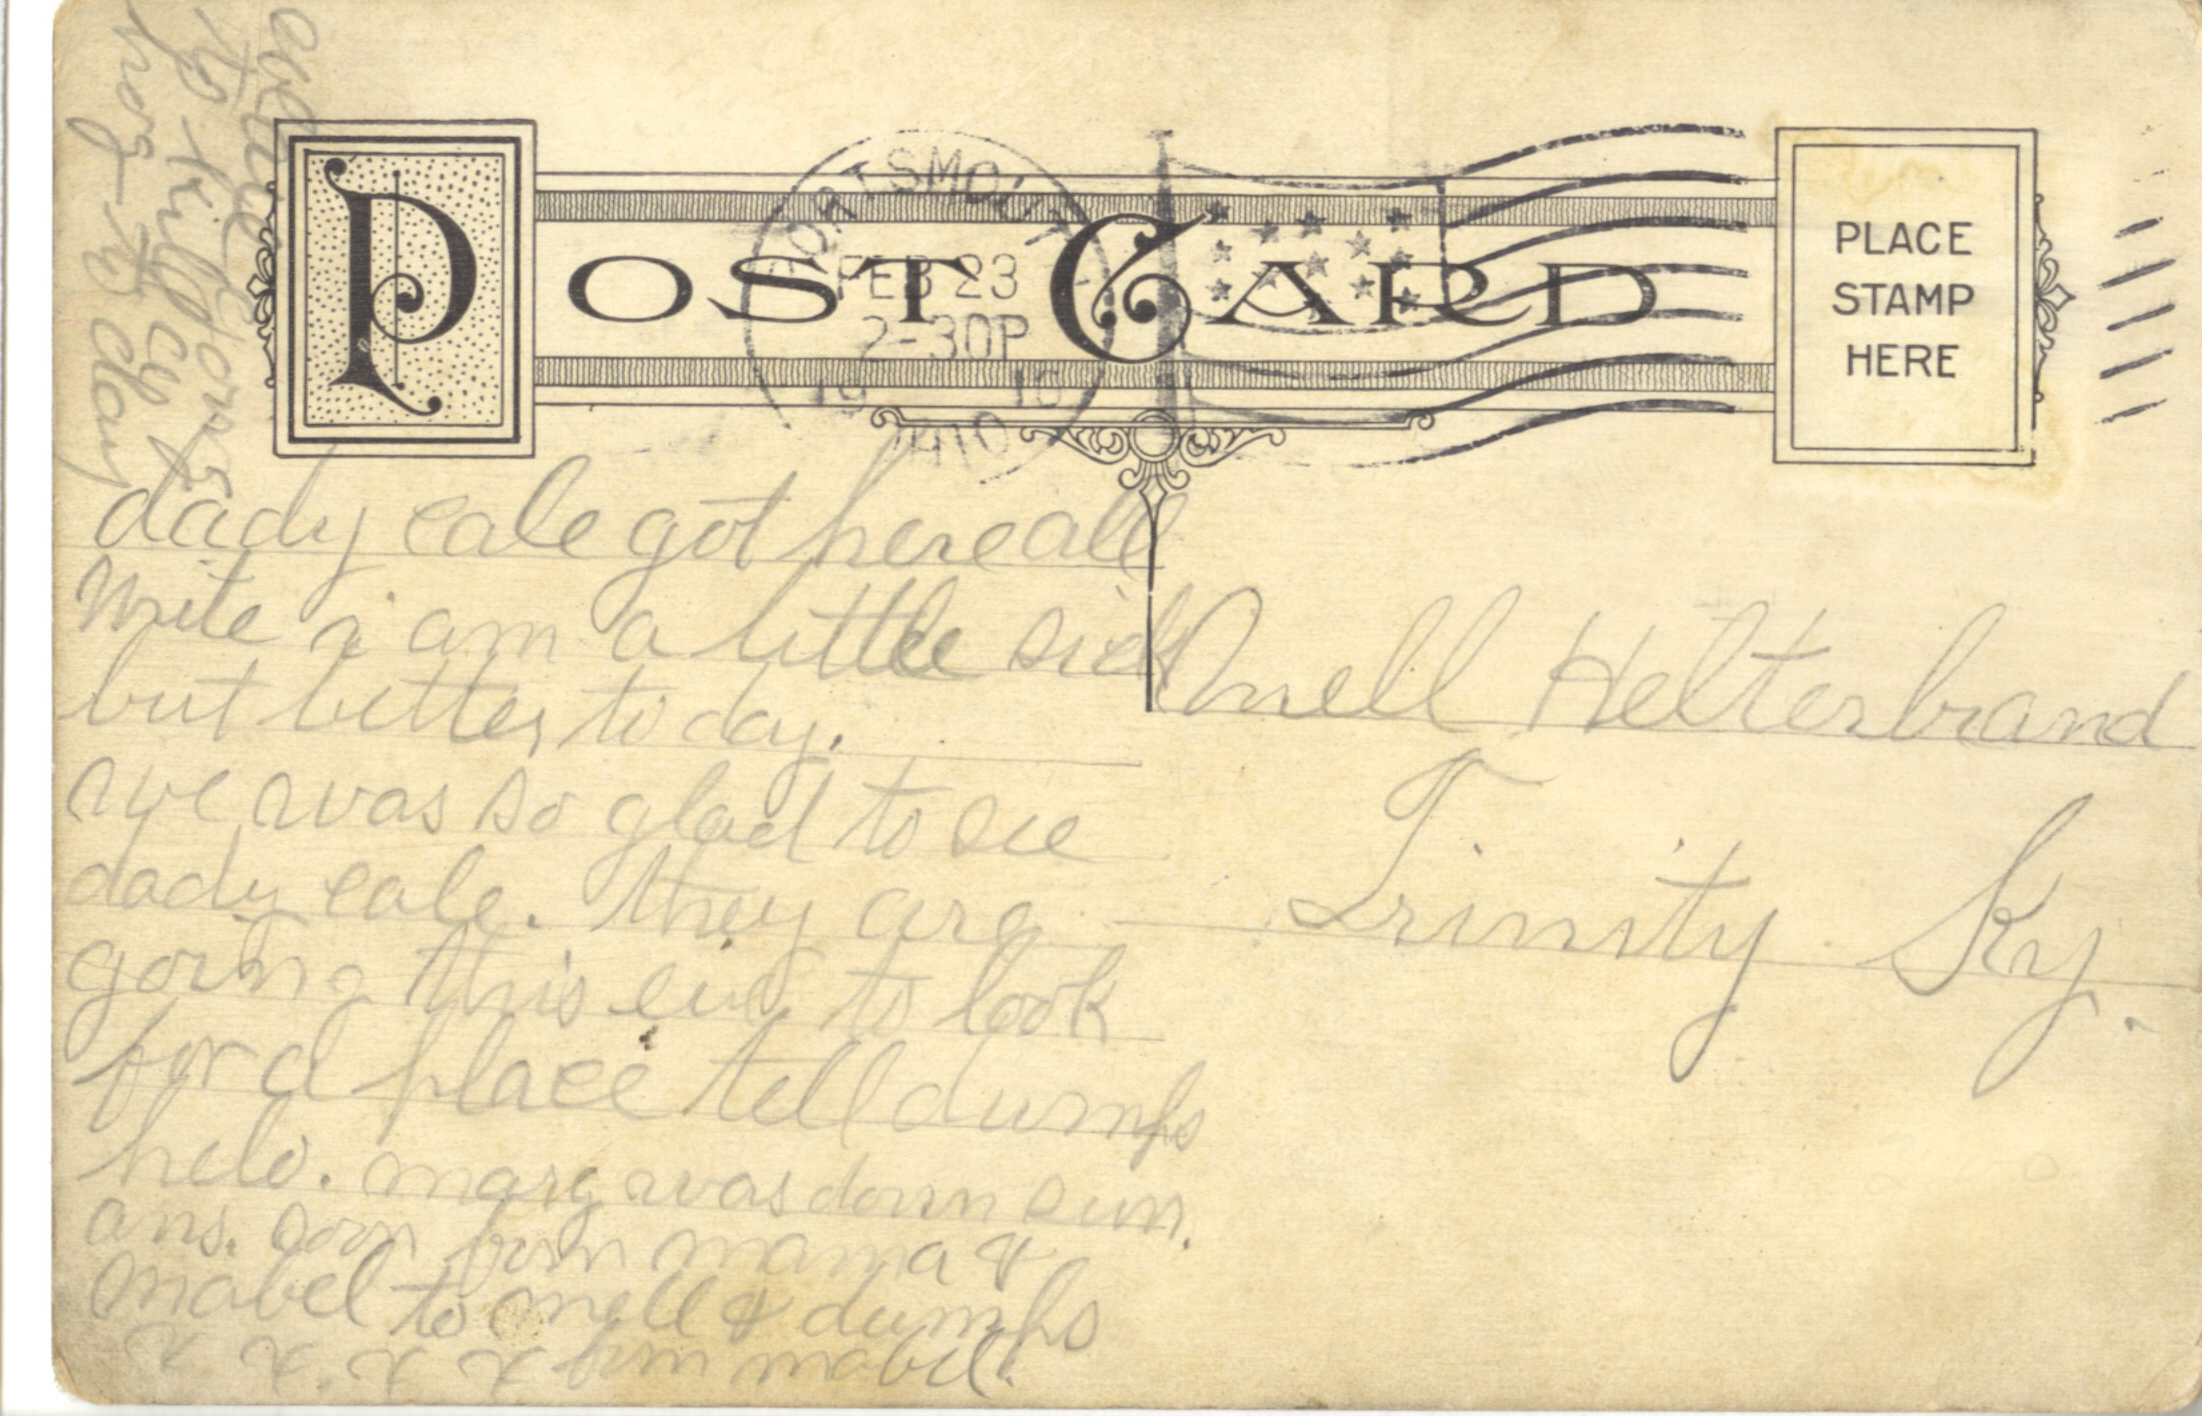 POST CARD
PORTSMOUTH
FEB 23
2-30P
19 10
OHIO
PLACE
STAMP
HERE
george
to kill cy
hog to day
dady cale got here all
write i am a little sick
but better to day.
we was so glad to see
dady cale. they are
going this eve to look
for a place tell dumps
helo. marg was down sun.
ans. soon from mama &
mabel to onell & dumps
x x. x x from mabel.
Onell Helterbrand
Trinity Ky.